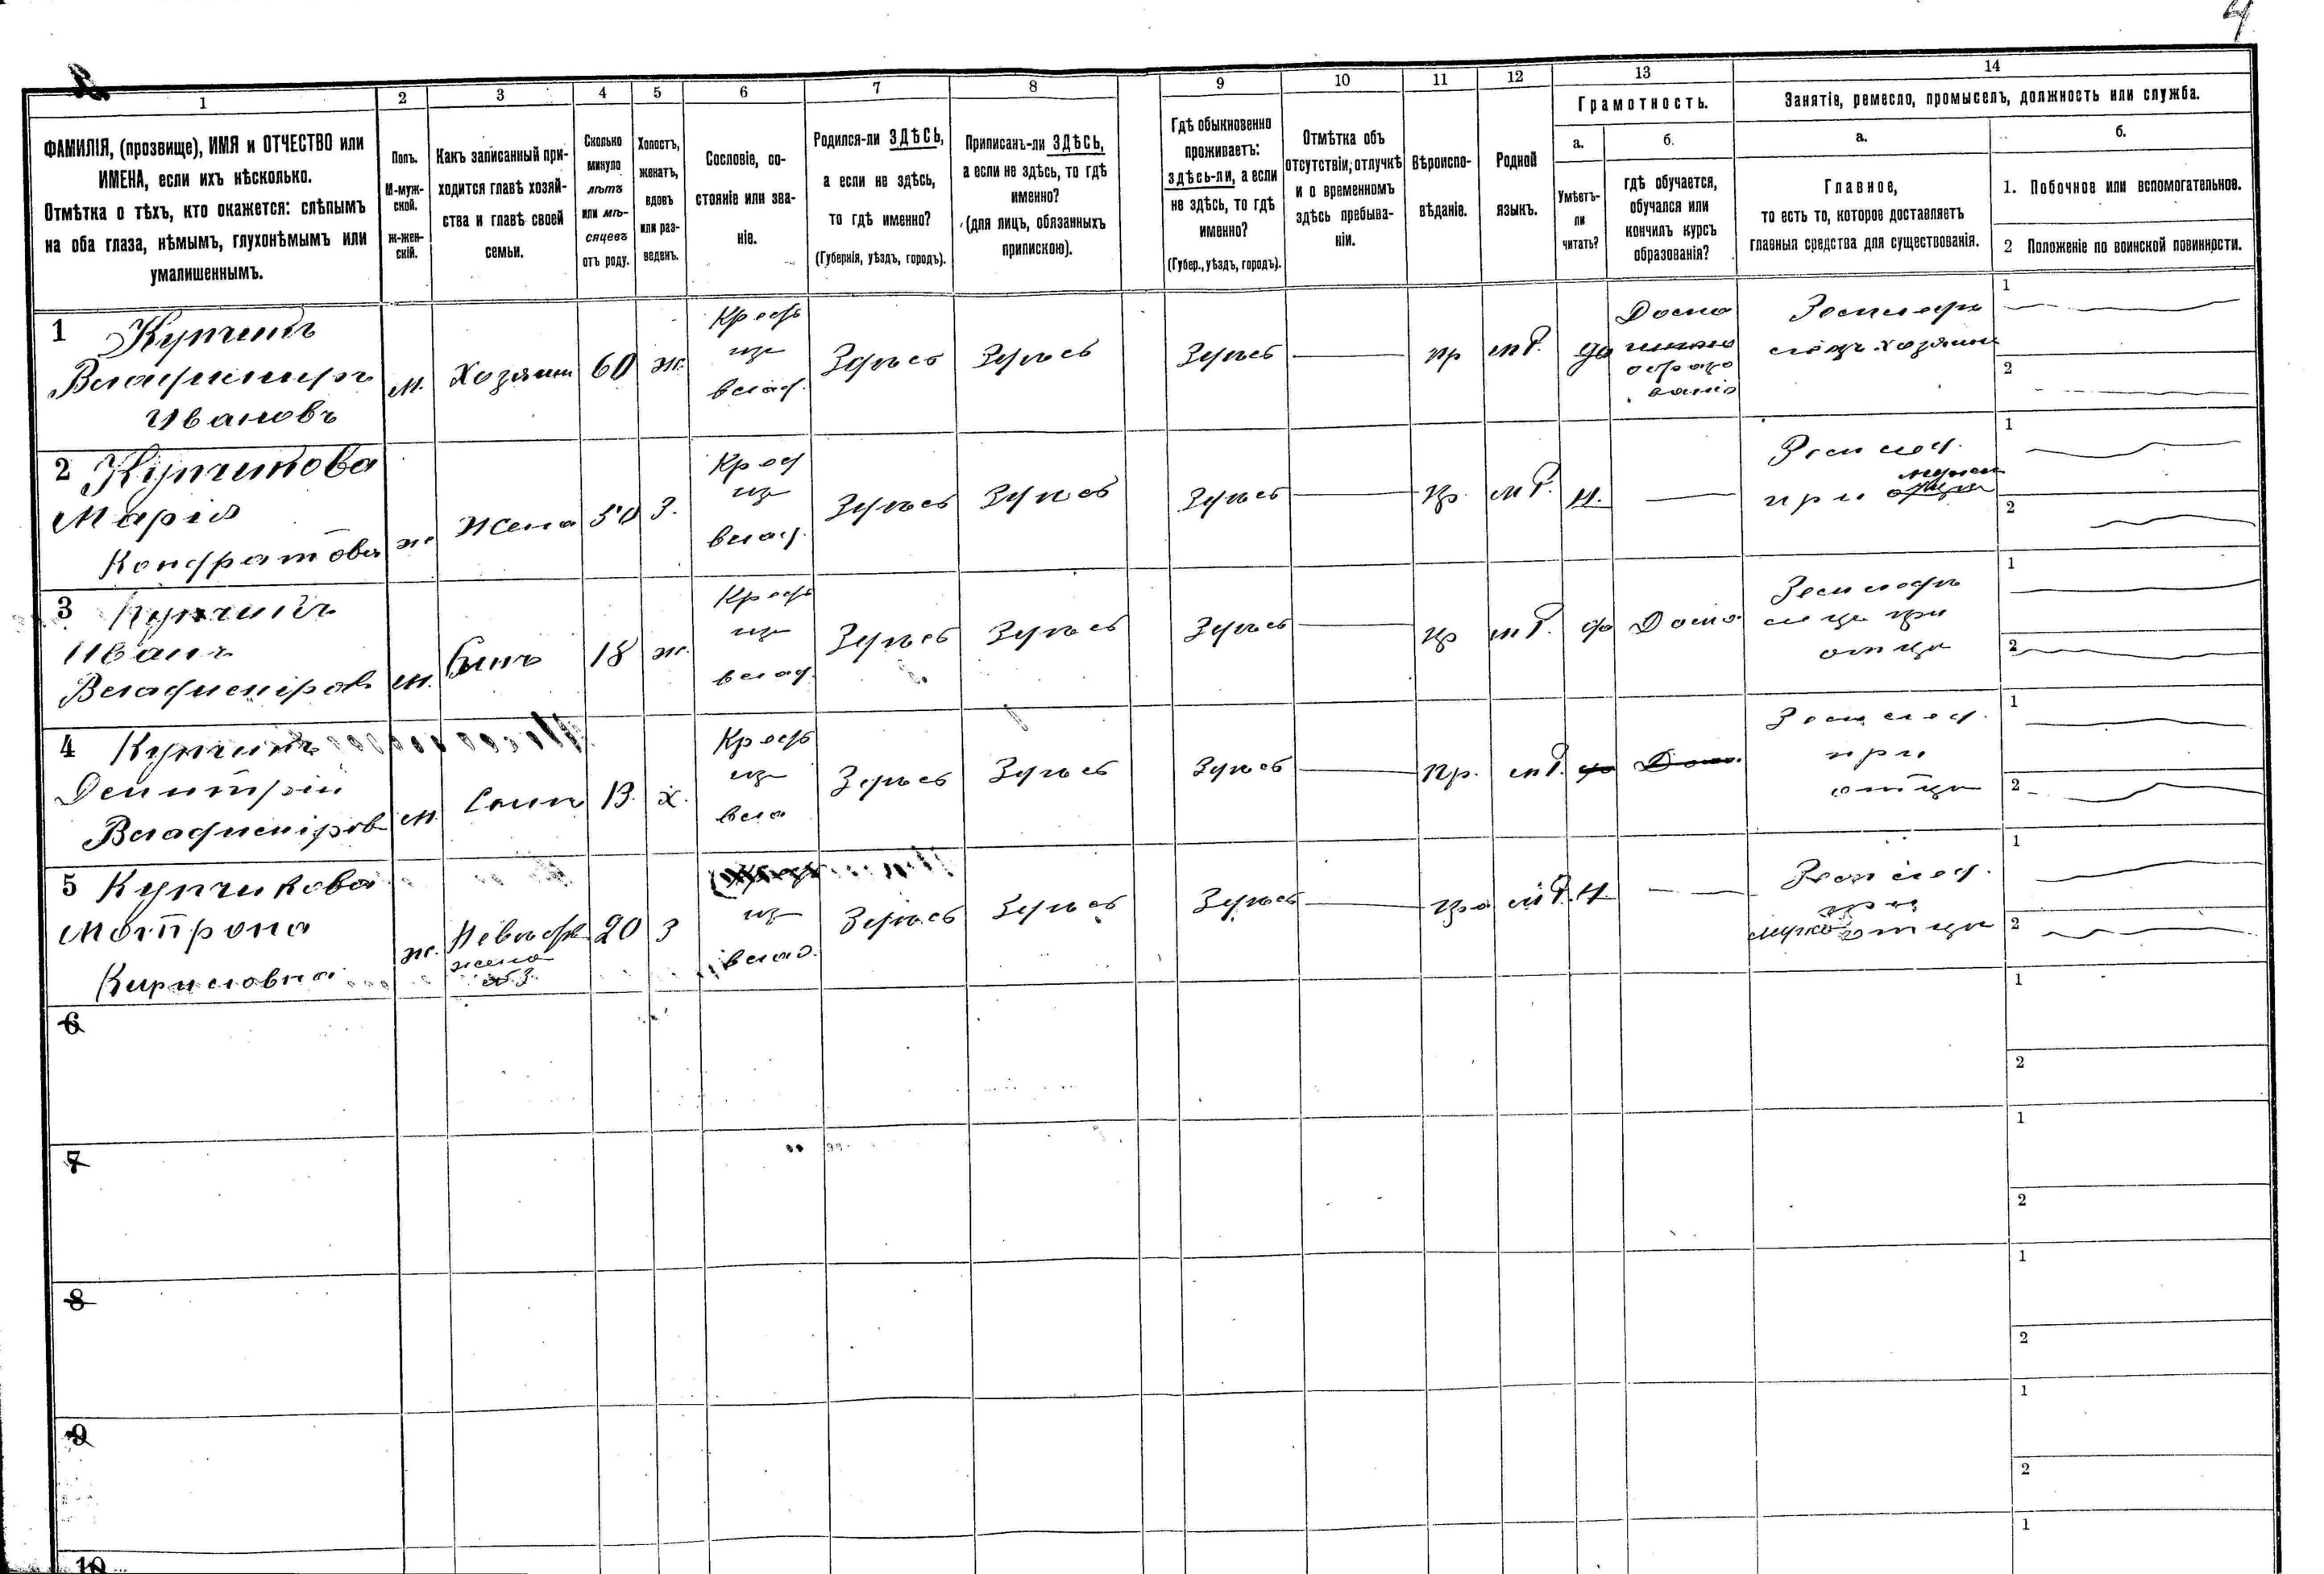 4
1
2
3
4
5
6
7
8
9
10
11
12
13
14
ФАМИЛІЯ, (прозвище), ИМЯ и ОТЧЕСТВО или
ИМЕНА, если ихъ нѣсколько.
Отмѣтка о тѣхъ, кто окажется: слѣпымъ
на оба глаза, нѣмымъ, глухонѣмымъ или
умалишеннымъ.
Полъ.
М-муж-
ской.
Ж-жен-
скій.
Какъ записанный при-
ходится главѣ хозяй-
ства и главѣ своей
семьи.
Сколько
минуло
лѣтъ
или мѣ-
сяцевъ
отъ роду.
Холостъ,
женатъ,
вдовъ
или раз-
веденъ.
Сословіе, со-
стояніе или зва-
ніе.
Родился-ли ЗДѢСЬ,
а если не здѣсь,
то гдѣ именно?
(Губернія, уѣздъ, городъ).
Приписанъ-ли ЗДѢСЬ,
а если не здѣсь, то гдѣ
именно?
(для лицъ, обязанныхъ
припискою).
Гдѣ обыкновенно
проживаетъ:
здѣсь-ли, а если
не здѣсь, то гдѣ
именно?
(Губер., уѣздъ, городъ).
Отмѣтка объ
отсутствіи, отлучкѣ
и о временномъ
здѣсь пребыва-
ніи.
Вѣроиспо-
вѣданіе.
Родной
языкъ.
Грамотность.
а.
Умѣетъ-
ли
читать?
б.
гдѣ обучается,
обучался или
кончилъ курсъ
образованія?
Занятіе, ремесло, промыселъ, должность или служба.
а.
Главное,
то есть то, которое доставляетъ
главныя средства для существованія.
б.
1. Побочное или вспомогательное.
2 Положеніе по воинской повинности.
1
Владимиръ
Ивановъ
м.
Хозяинъ
60
ж.
Крест
из
влад.
Здѣсь
Здѣсь
Здѣсь
пр
да
хозяинъ
1
2
2 Купчикова
Марія
Кондратова
ж
Жена
50
З.
Крест
из
влад.
Здѣсь
Здѣсь
Здѣсь
пр.
н.
Землед.
при
1
2
3
Иванъ
Владиміров
м.
Сынъ
18
ж.
Крест
из
влад.
Здѣсь
Здѣсь
Здѣсь
пр
да
Дома
при
отцѣ
1
2
4
Дмитрій
Владиміров
м.
Сынъ
13.
х.
Крест
из
вла
Здѣсь
Здѣсь
Здѣсь
Пр.
Землед.
при
отцѣ
1
2
5 Купчикова
Мотрона
Кириловна
ж.
жена
№3.
20
З
из
влад.
Здѣсь
Здѣсь
Здѣсь
пр
Н
Землед.
при
отцѣ
1
2
6
1
2
7
1
2
8
1
2
9
1
2
10
1